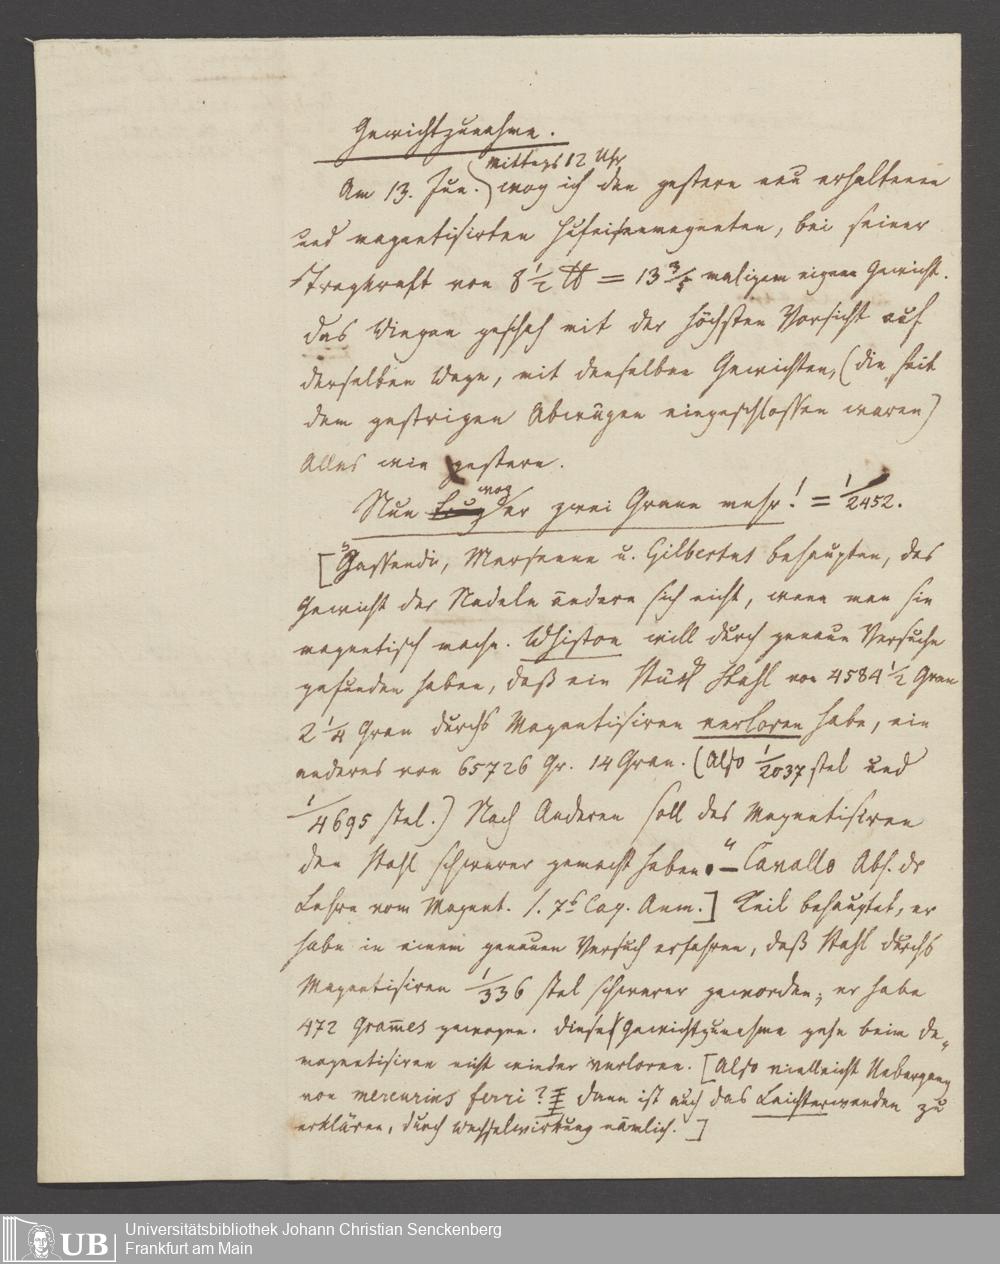 Gewichtzunahme.
Mittags 12 Uhr
Am 13. Jun. wog ich den gestern neu erhaltenen
und magnetisirten Hufeisenmagneten, bei seiner
Tragkraft von 8 1/2 ℔ = 13 3/5 maligem eignen Gewicht.
Das Wiegen geschah mit der höchsten Vorsicht auf
derselben Wage, mit denselben Gewichten, (die seit
dem gestrigen Abwägen eingeschlossen waren)
Alles wie gestern.
Nun wog er zwei Grane mehr! = 1/2452.
["Gassendi, Mersenne u. Gilbertus behaupten, das
Gewicht der Nadeln ändere sich nicht, wenn man sie
magnetisch mache. Whiston will durch genaue Versuche
gefunden haben, daß ein Stück Stahl von 4584 1/2 Gran
2 1/4 Gran durchs Magnetisiren verloren habe, ein
anderes von 65726 Gr. 14 Gran. (Also 1/2037 stel und
1/4695 stel.) Nach Anderen soll das Magnetisiren
den Stahl schwerer gemacht haben." – Cavallo Abh. dr
Lehre vom Magnet. 1. 7s Cap. Anm.] Keil behauptet, er
habe in einem genauen Versuch erfahren, daß Stahl durchs
Magnetisiren 1/336 stel schwerer geworden; er habe
472 Gram̄es gewogen. Diese Gewichtzunahme gehe beim De-
magnetisiren nicht wieder verloren. [Also vielleicht Uebergang
von mercurius ferri? Dann ist auch das Leichterwerden zu
erklären, durch Wechselwirkung nämlich.]
UB
Universitätsbibliothek Johann Christian Senckenberg
Frankfurt am Main